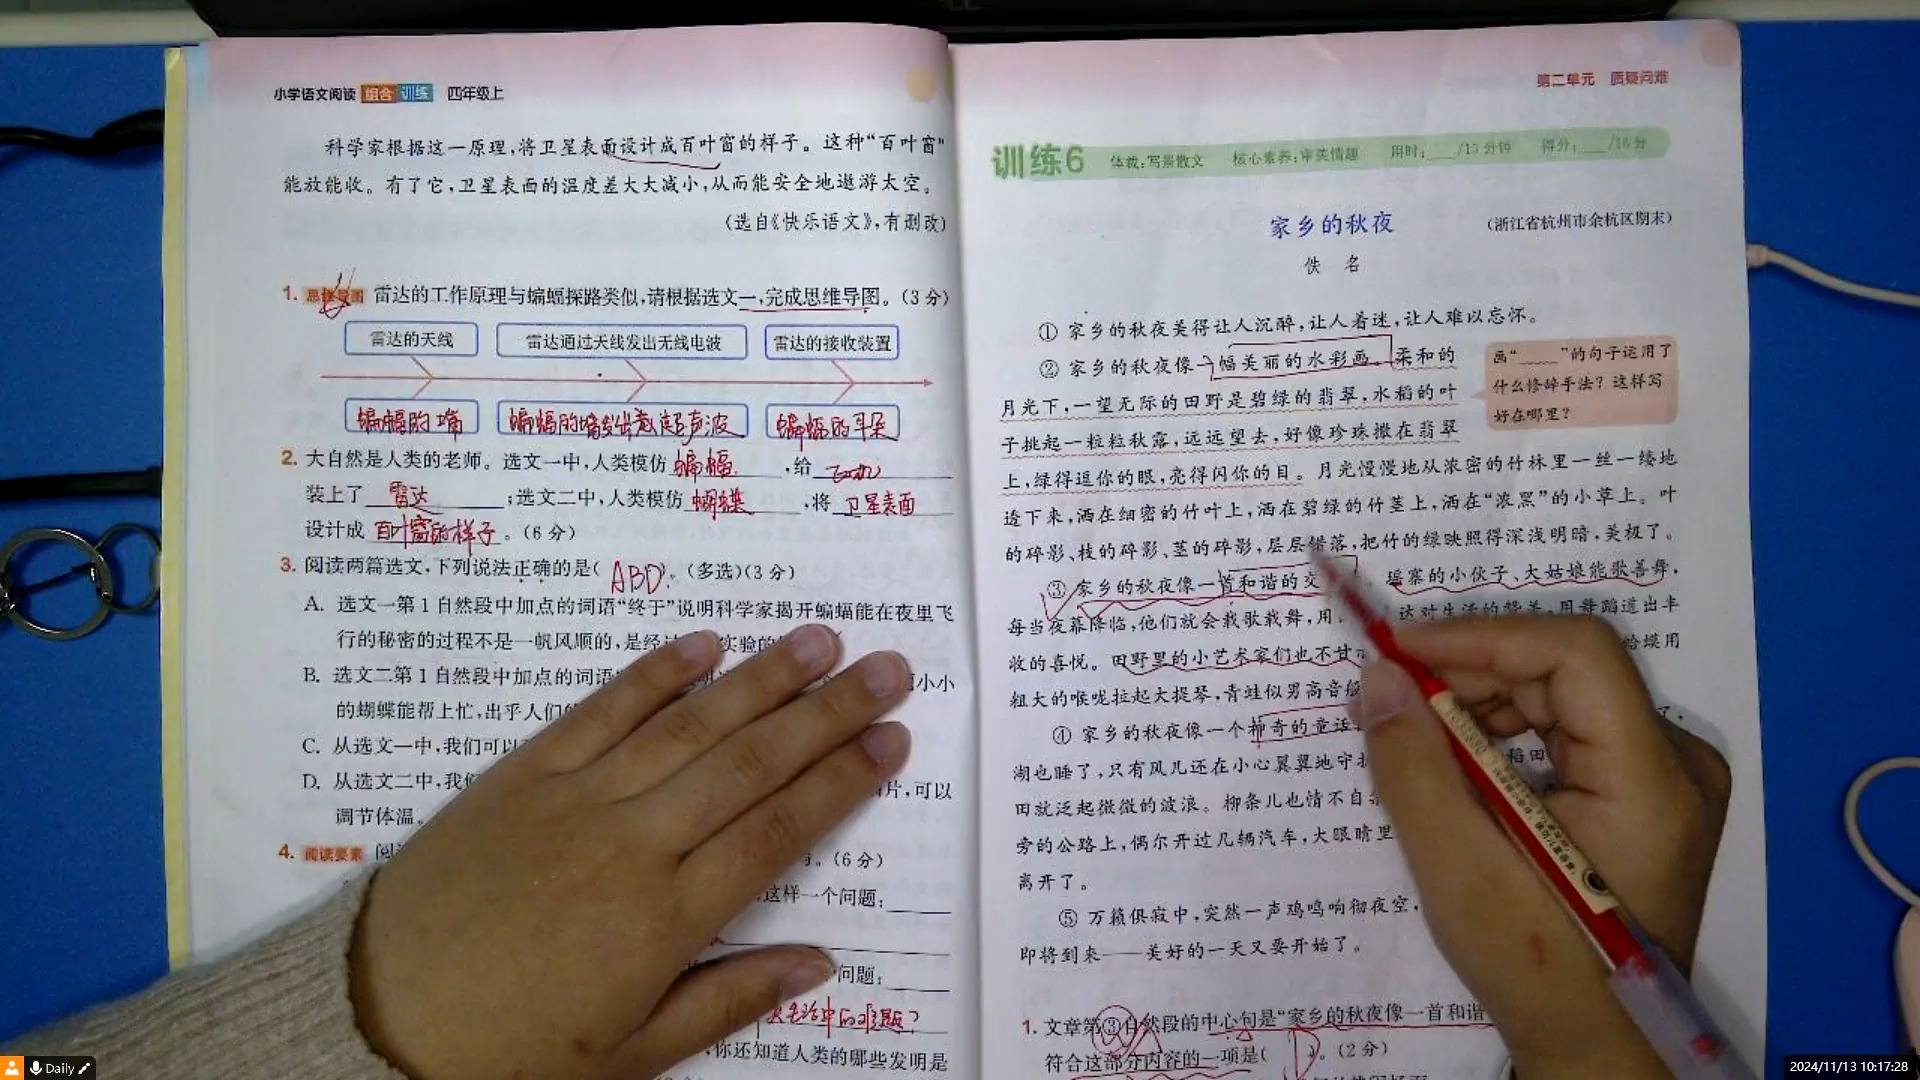 小学语文阅读 组合训练 四年级上
科学家根据这一原理,将卫星表面设计成百叶窗的样子。这种“百叶窗”
能放能收。有了它,卫星表面的温度差大大减小,从而能安全地遨游太空。
(选自《快乐语文》,有删改)
1. 思维导图 雷达的工作原理与蝙蝠探路类似,请根据选文一,完成思维导图。(3分)
雷达的天线 雷达通过天线发出无线电波 雷达的接收装置
蝙蝠的嘴 蝙蝠的嘴发出超声波 蝙蝠的耳朵
2. 大自然是人类的老师。选文一中,人类模仿 蝙蝠 ,给
装上了 雷达 ;选文二中,人类模仿 蝴蝶 ,将 卫星表面
设计成 百叶窗的样子 。(6分)
3. 阅读两篇选文,下列说法正确的是( ABD )。(多选)(3分)
A. 选文一第1自然段中加点的词语“终于”说明科学家揭开蝙蝠能在夜里飞
行的秘密的过程不是一帆风顺的,是经过 实验的
B. 选文二第1自然段中加点的词语 小小
的蝴蝶能帮上忙,出乎人们
C. 从选文一中,我们可以
D. 从选文二中,我们 片,可以
调节体温。
4. 阅读要素 阅 。(6分)
这样一个问题:
问题:
生活中的难题?
,你还知道人类的哪些发明是
第二单元 质疑问难
训练6 体裁:写景散文 核心素养:审美情趣 用时:____/15分钟 得分:____/16分
家乡的秋夜 (浙江省杭州市余杭区期末)
佚 名
① 家乡的秋夜美得让人沉醉,让人着迷,让人难以忘怀。
② 家乡的秋夜像一幅美丽的水彩画。柔和的
月光下,一望无际的田野是碧绿的翡翠,水稻的叶
子挑起一粒粒秋露,远远望去,好像珍珠撒在翡翠
上,绿得逗你的眼,亮得闪你的目。月光慢慢地从浓密的竹林里一丝一缕地
透下来,洒在细密的竹叶上,洒在碧绿的竹茎上,洒在“浓黑”的小草上。叶
的碎影、枝的碎影、茎的碎影,层层错落,把竹的绿映照得深浅明暗,美极了。
画“____”的句子运用了
什么修辞手法?这样写
好在哪里?
③ 家乡的秋夜像一首和谐的交 。瑶寨的小伙子、大姑娘能歌善舞,
每当夜幕降临,他们就会载歌载舞,用 达对生活的赞美,用舞蹈道出丰
收的喜悦。田野里的小艺术家们也不甘 蛤蟆用
粗大的喉咙拉起大提琴,青蛙似男高音般
④ 家乡的秋夜像一个神奇的童话 了,
湖也睡了,只有风儿还在小心翼翼地守护 稻田
田就泛起微微的波浪。柳条儿也情不自禁
旁的公路上,偶尔开过几辆汽车,大眼睛里
离开了。
⑤ 万籁俱寂中,突然一声鸡鸣响彻夜空,
即将到来——美好的一天又要开始了。
1. 文章第③自然段的中心句是“家乡的秋夜像一首和谐
符合这部分内容的一项是( D )。(2分)
Daily
2024/11/13 10:17:28